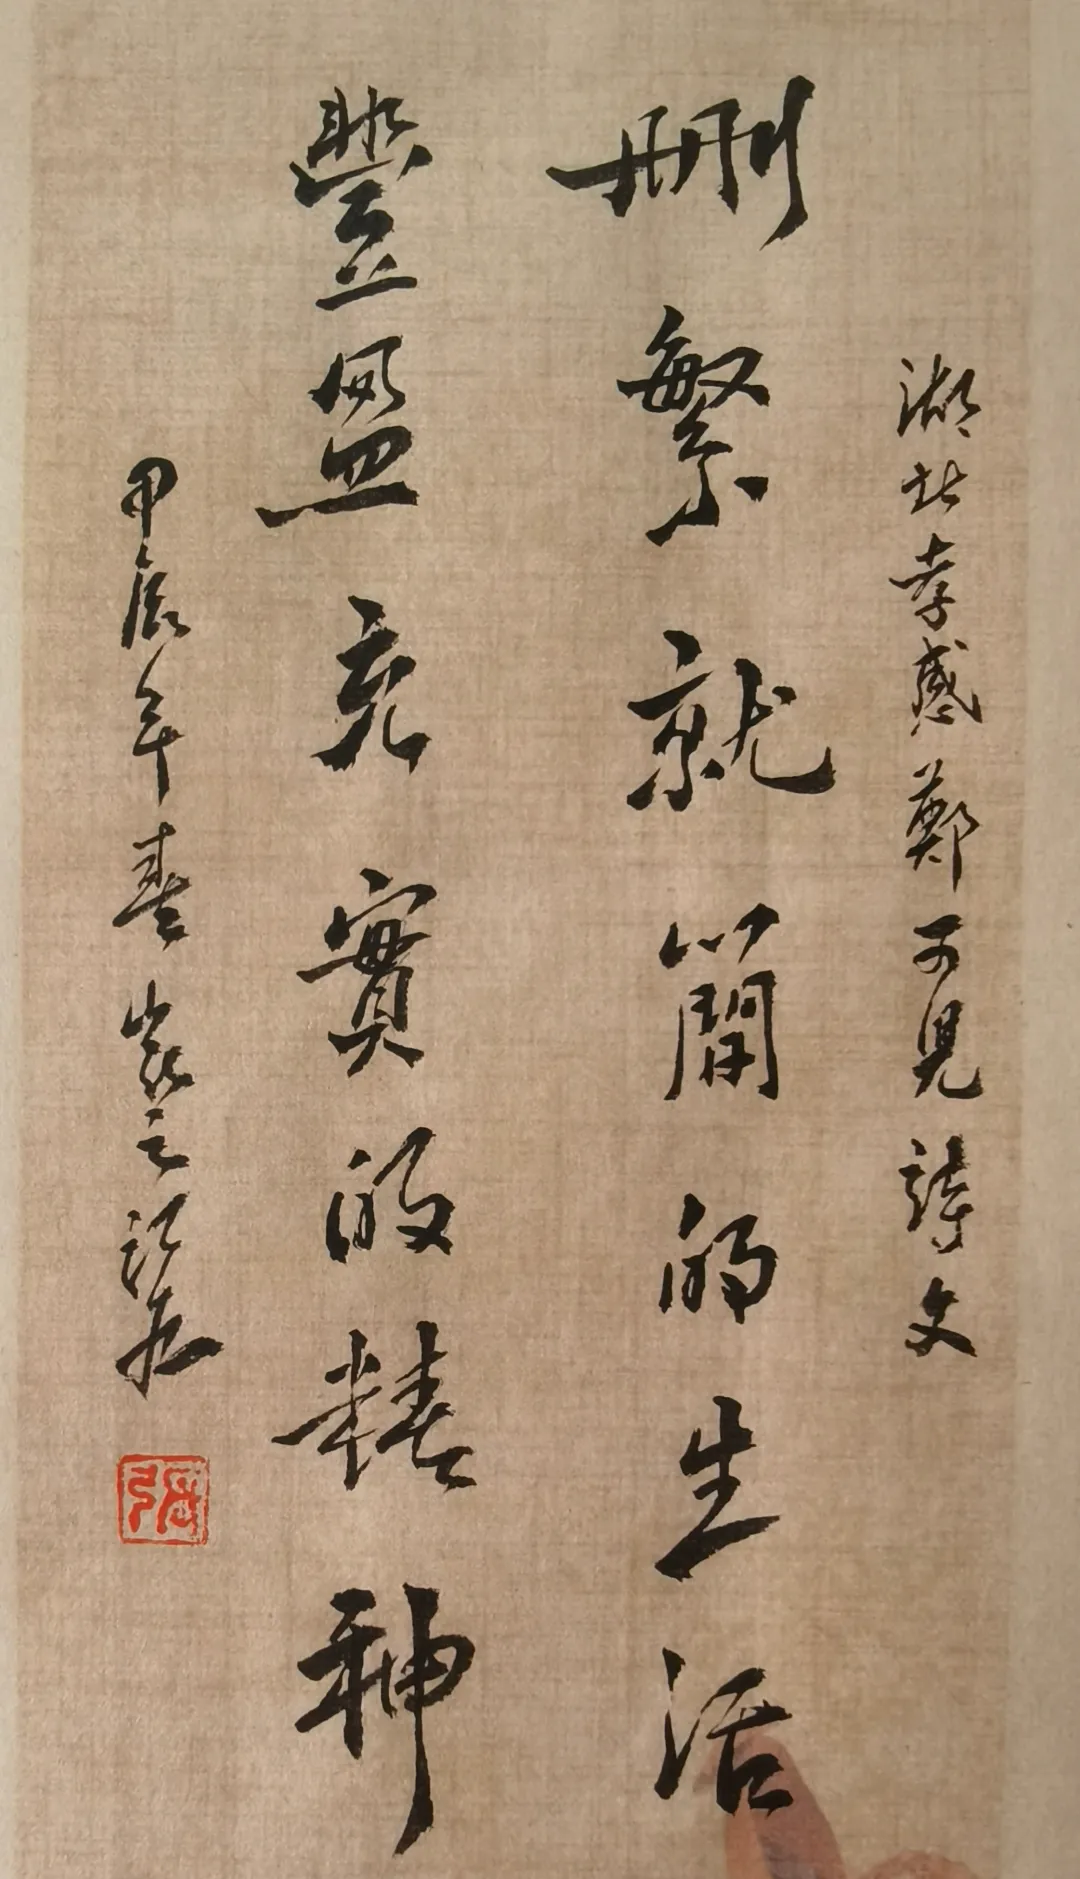 湖北孝感鄭可見詩文
刪繁就簡的生活
豐盈充實的精神
甲辰年春 之
張